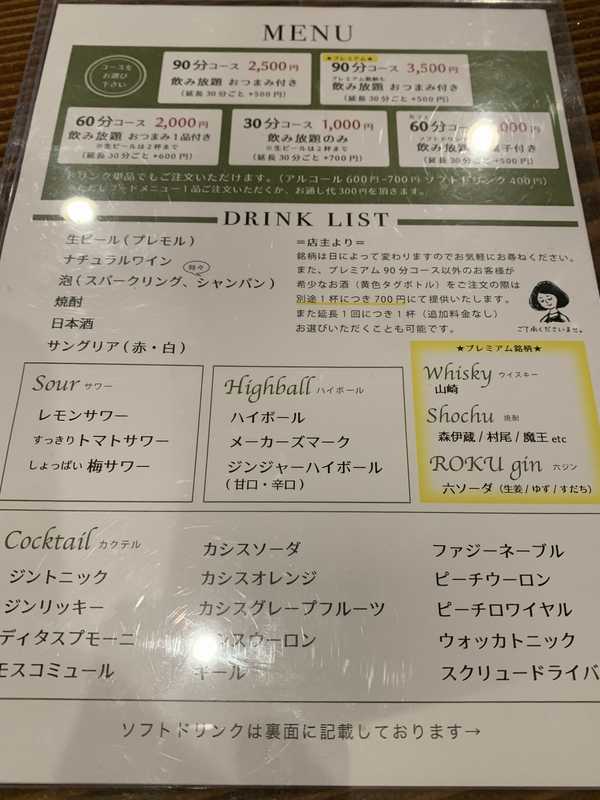 MENU
コースを
お選び
下さい
90分コース 2,500円
飲み放題 おつまみ付き
(延長30分ごと +500円)
★プレミアム★
90分コース 3,500円
飲み放題 おつまみ付き
(延長30分ごと +500円)
60分コース 2,000円
飲み放題 おつまみ1品付き
※生ビールは2杯まで
(延長30分ごと +600円)
30分コース 1,000円
飲み放題のみ
※生ビールは2杯まで
(延長30分ごと +700円)
60分
飲み放題 付き
(延長30分ごと +500円)
ドリンク単品でもご注文いただけます。(アルコール600円~700円 ソフトドリンク400円)
※ただしフードメニュー1品ご注文いただくか、お通し代300円を頂きます。
DRINK LIST
生ビール(プレモル)
ナチュラルワイン
時々
泡(スパークリング、シャンパン)
焼酎
日本酒
サングリア(赤・白)
=店主より=
銘柄は日によって変わりますのでお気軽にお尋ねください。
また、プレミアム90分コース以外のお客様が
希少なお酒(黄色タグボトル)をご注文の際は
別途1杯につき700円にて提供いたします。
また延長1回につき1杯(追加料金なし)
お選びいただくことも可能です。
ご了承くださいませ。
Sour サワー
レモンサワー
すっきりトマトサワー
しょっぱい 梅サワー
Highball ハイボール
ハイボール
メーカーズマーク
ジンジャーハイボール
(甘口・辛口)
★プレミアム銘柄★
Whisky ウイスキー
山崎
Shochu 焼酎
森伊蔵/村尾/魔王 etc
ROKU gin 六ジン
六ソーダ(生姜/ゆず/すだち)
Cocktail カクテル
ジントニック
ジンリッキー
ディタスプモーニ
モスコミュール
カシスソーダ
カシスオレンジ
カシスグレープフルーツ
シスウーロン
キール
ファジーネーブル
ピーチウーロン
ピーチロワイヤル
ウォッカトニック
スクリュードライバ
ソフトドリンクは裏面に記載しております→